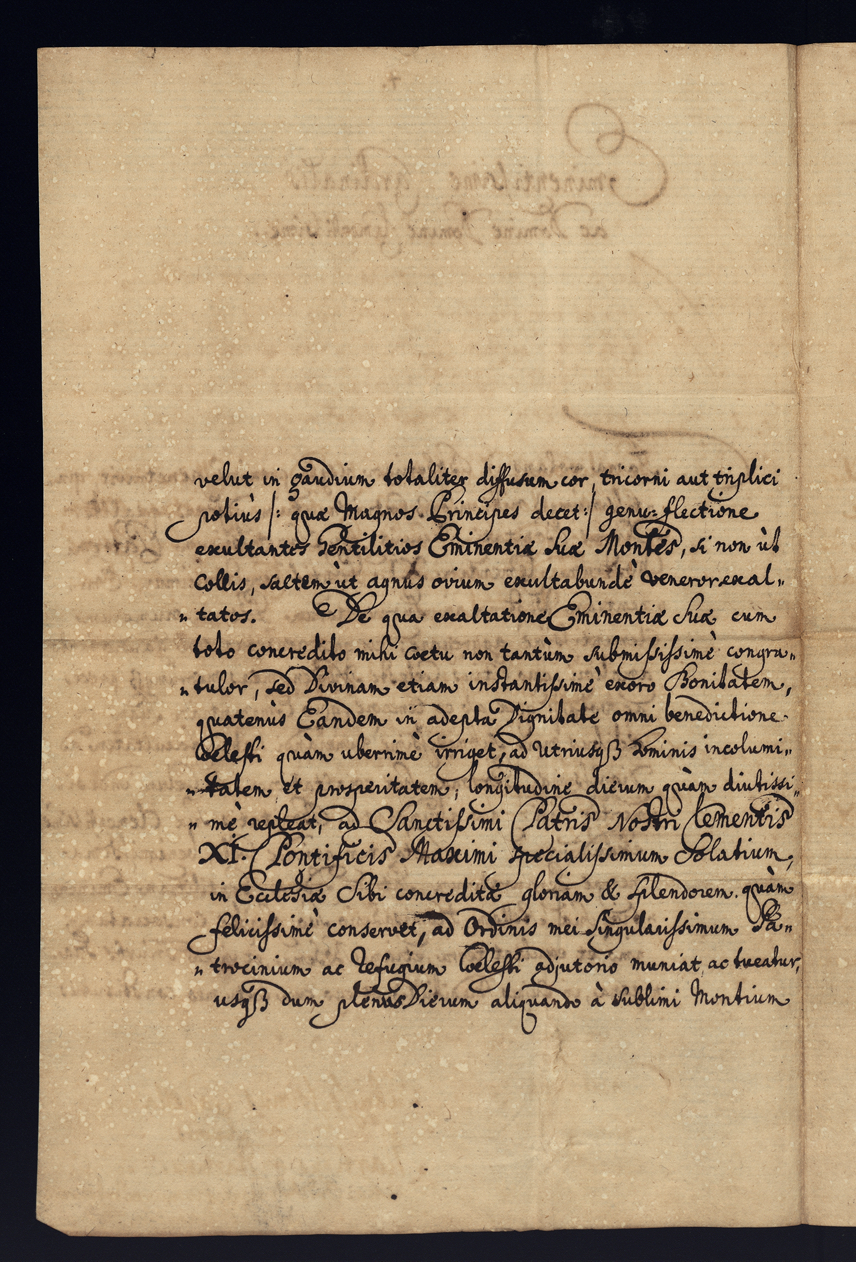 velut in gaudium totaliter diffusum cor, tricorni aut triplici
potiùs /: quæ Magnos Principes decet :/ genu=flectione
exultantes Gentilitios Eminentiæ Suæ Montes, si non ùt
Collis, saltem ùt agnus ovium exultabundè veneror exal„
„tatos. De qua exaltatione Eminentiæ Suæ cum
toto concredito mihi coetu non tantùm submississimè congra„
„tulor, sed Divinam etiam instantissimè exoro Bonitatem,
quatenùs Eandem in adepta Dignitate omni benedictione
Coelesti quàm uberrimè irriget, ad Utriusqß hominis incolumi„
„tatem et prosperitatem, longitudine dierum quàm diutissi„
„mè repleat, ad Sanctissimi Patris Nostri Clementis
XI. Pontificis Maximi specialissimum Solatium,
in Ecclesiæ Sibi concreditæ gloriam & splendorem quàm
felicissimè conservet, ad Ordinis mei singularissimum Pa„
„trocinium ac refugium Coelesti adjutorio muniat, ac tueatur,
usqß dum plenus Dierum aliquando à sublimi Montium